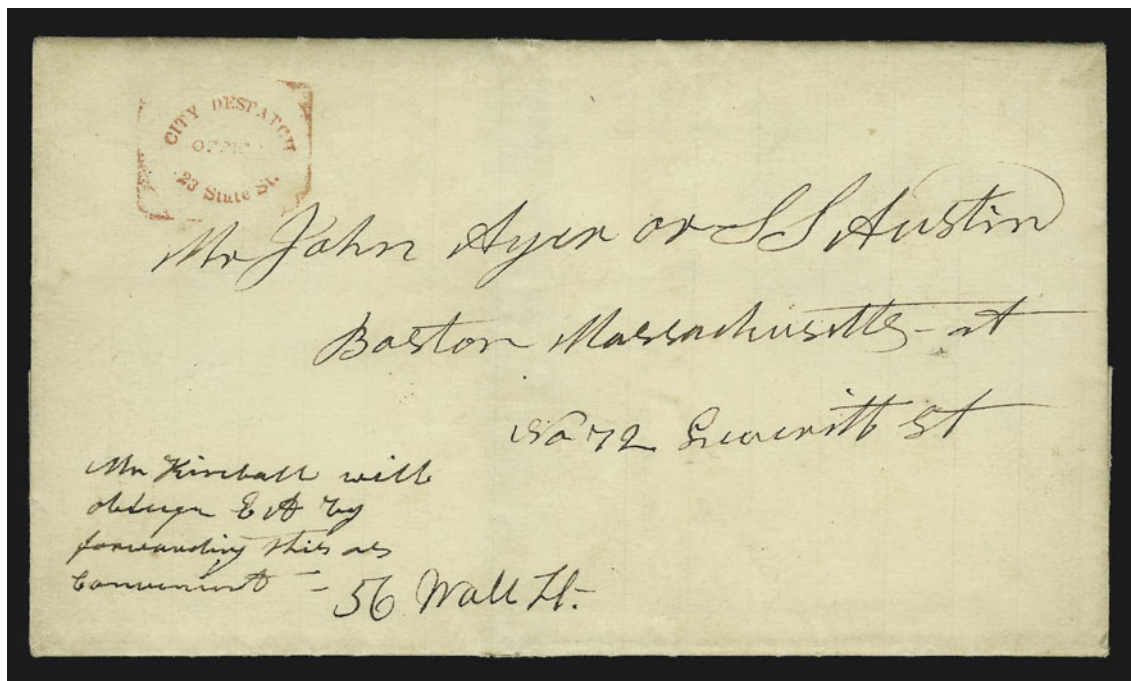 CITY DESPATCH
OFFICE
23 State St.
Mr John Ayer or S S Austin
Boston Massachusetts - at
No 72 Leveritt St
Mr Kimball will
oblige E A by
forwarding this as
convenient -
56 Wall St.